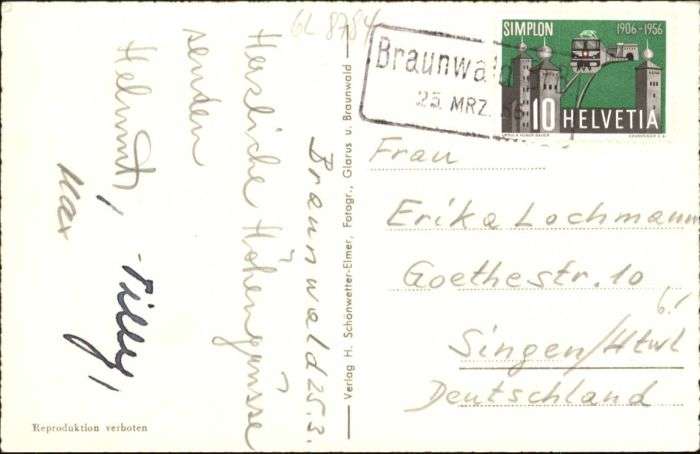 GL 8754
Braunwald
25. MRZ. 56
SIMPLON 1906-1956
10 HELVETIA
Braunwald 25.3.
Herzliche Höhengrüsse
senden
Helmut,
Tilly,
Max
Verlag H. Schönwetter-Elmer, Fotogr., Glarus u. Braunwald
Frau
Erika Lochmann
Goethestr. 10
Singen/Htwl
Deutschland
Reproduktion verboten